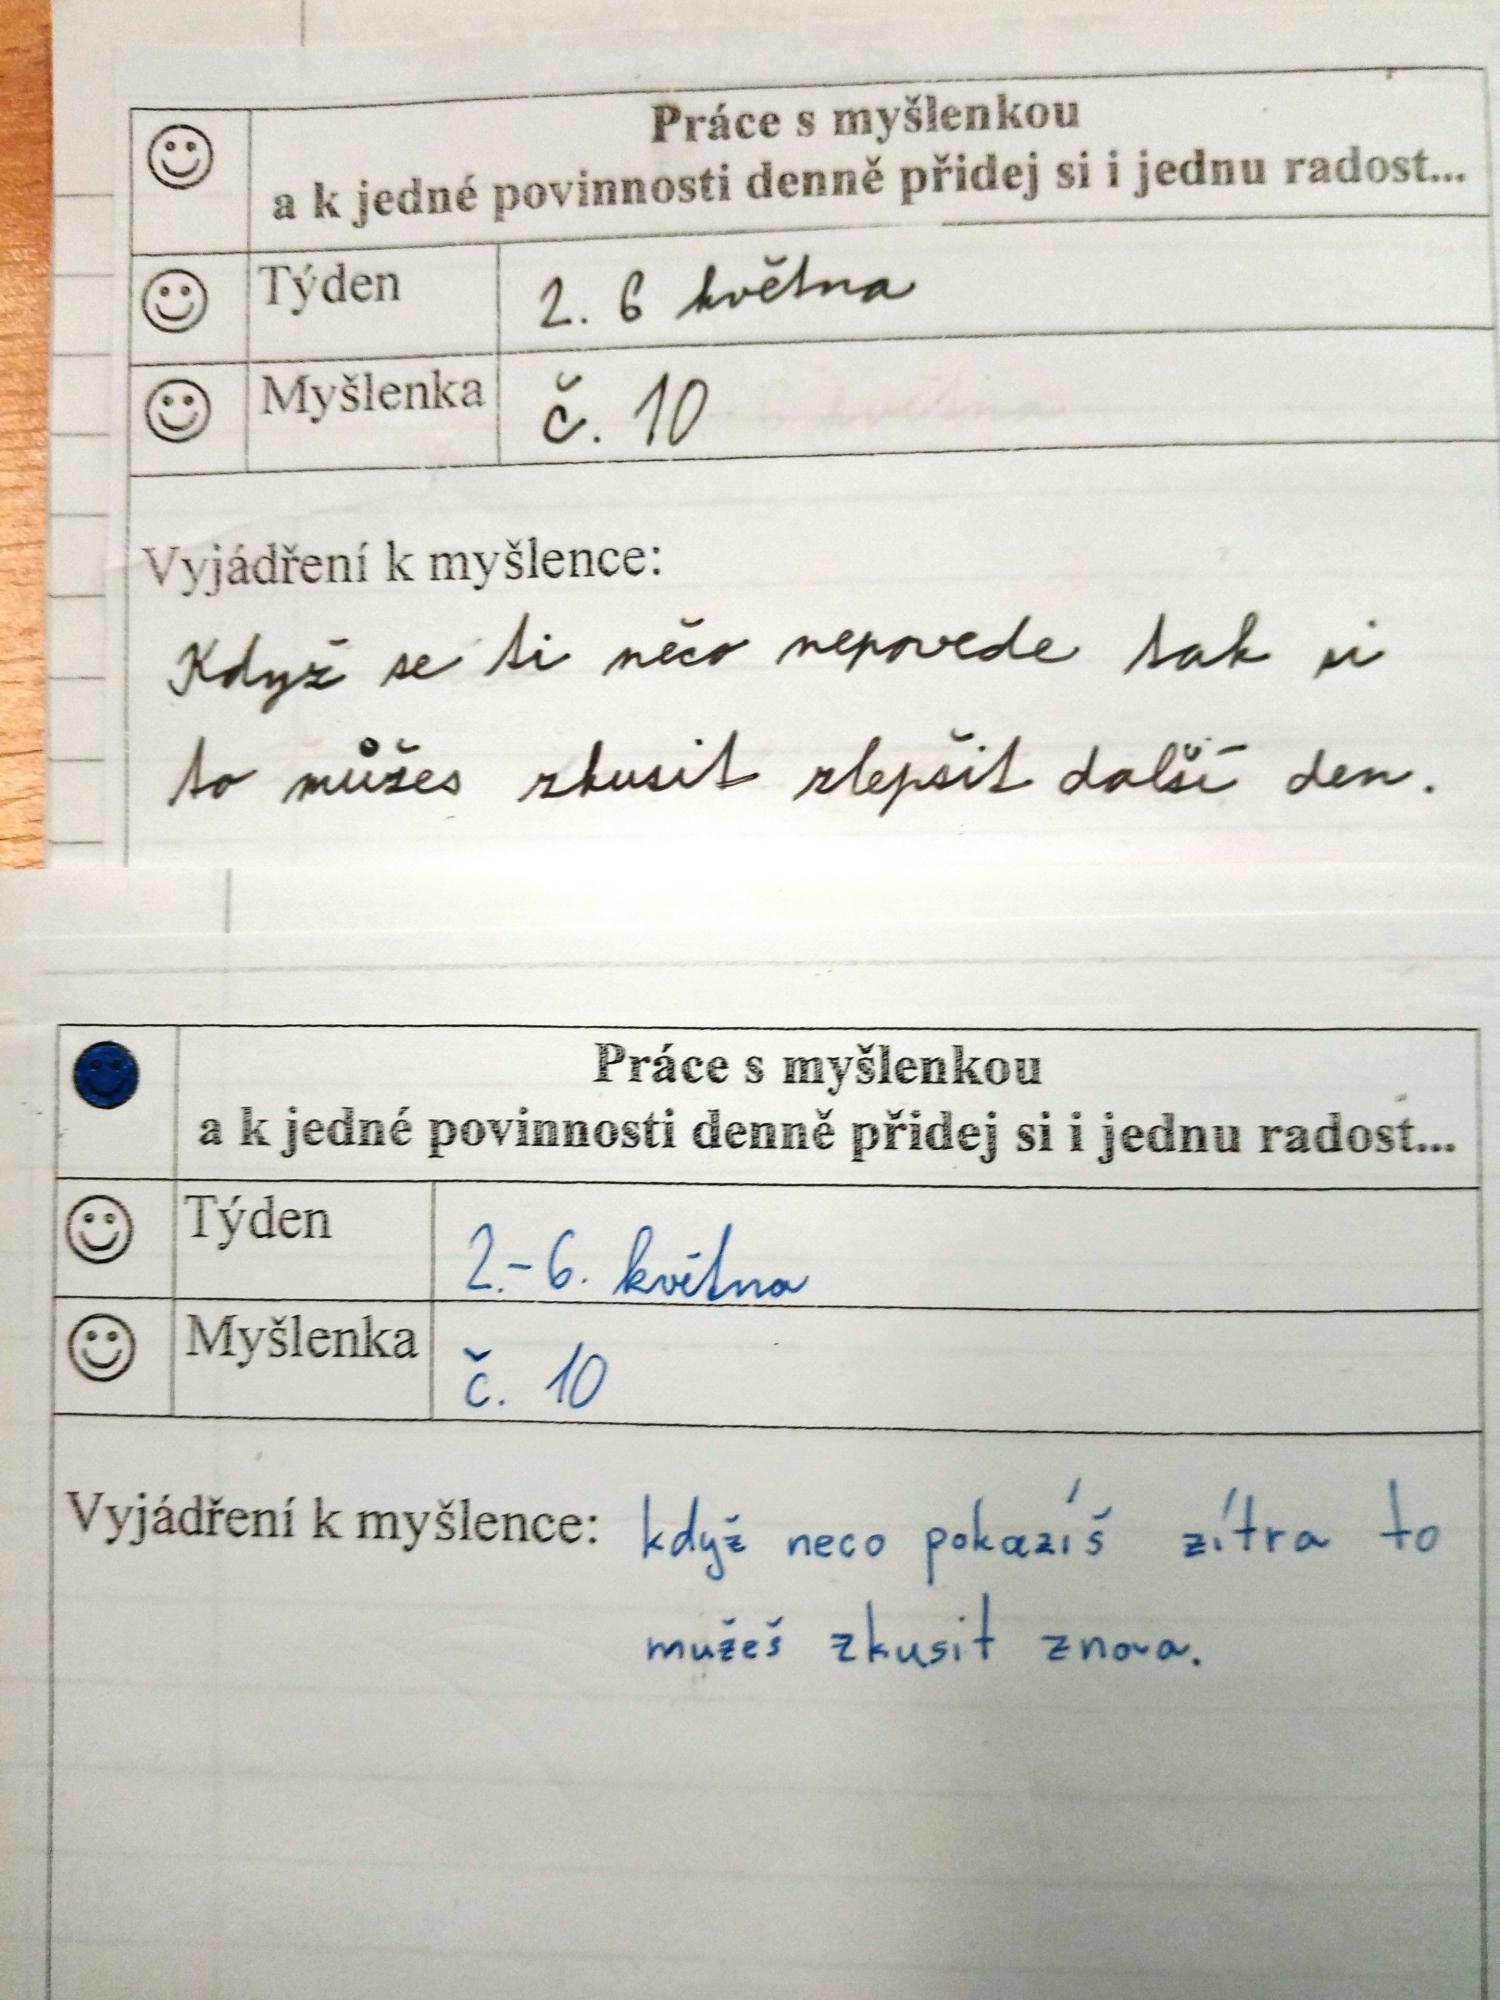 Práce s myšlenkou
a k jedné povinnosti denně přidej si i jednu radost...
Týden 2. 6 května
Myšlenka č. 10
Vyjádření k myšlence:
Když se ti něco nepovede tak si
to můžes zkusit zlepšit další den.
Práce s myšlenkou
a k jedné povinnosti denně přidej si i jednu radost...
Týden 2.-6. května
Myšlenka č. 10
Vyjádření k myšlence: když neco pokazíš zítra to
mužeš zkusit znova.